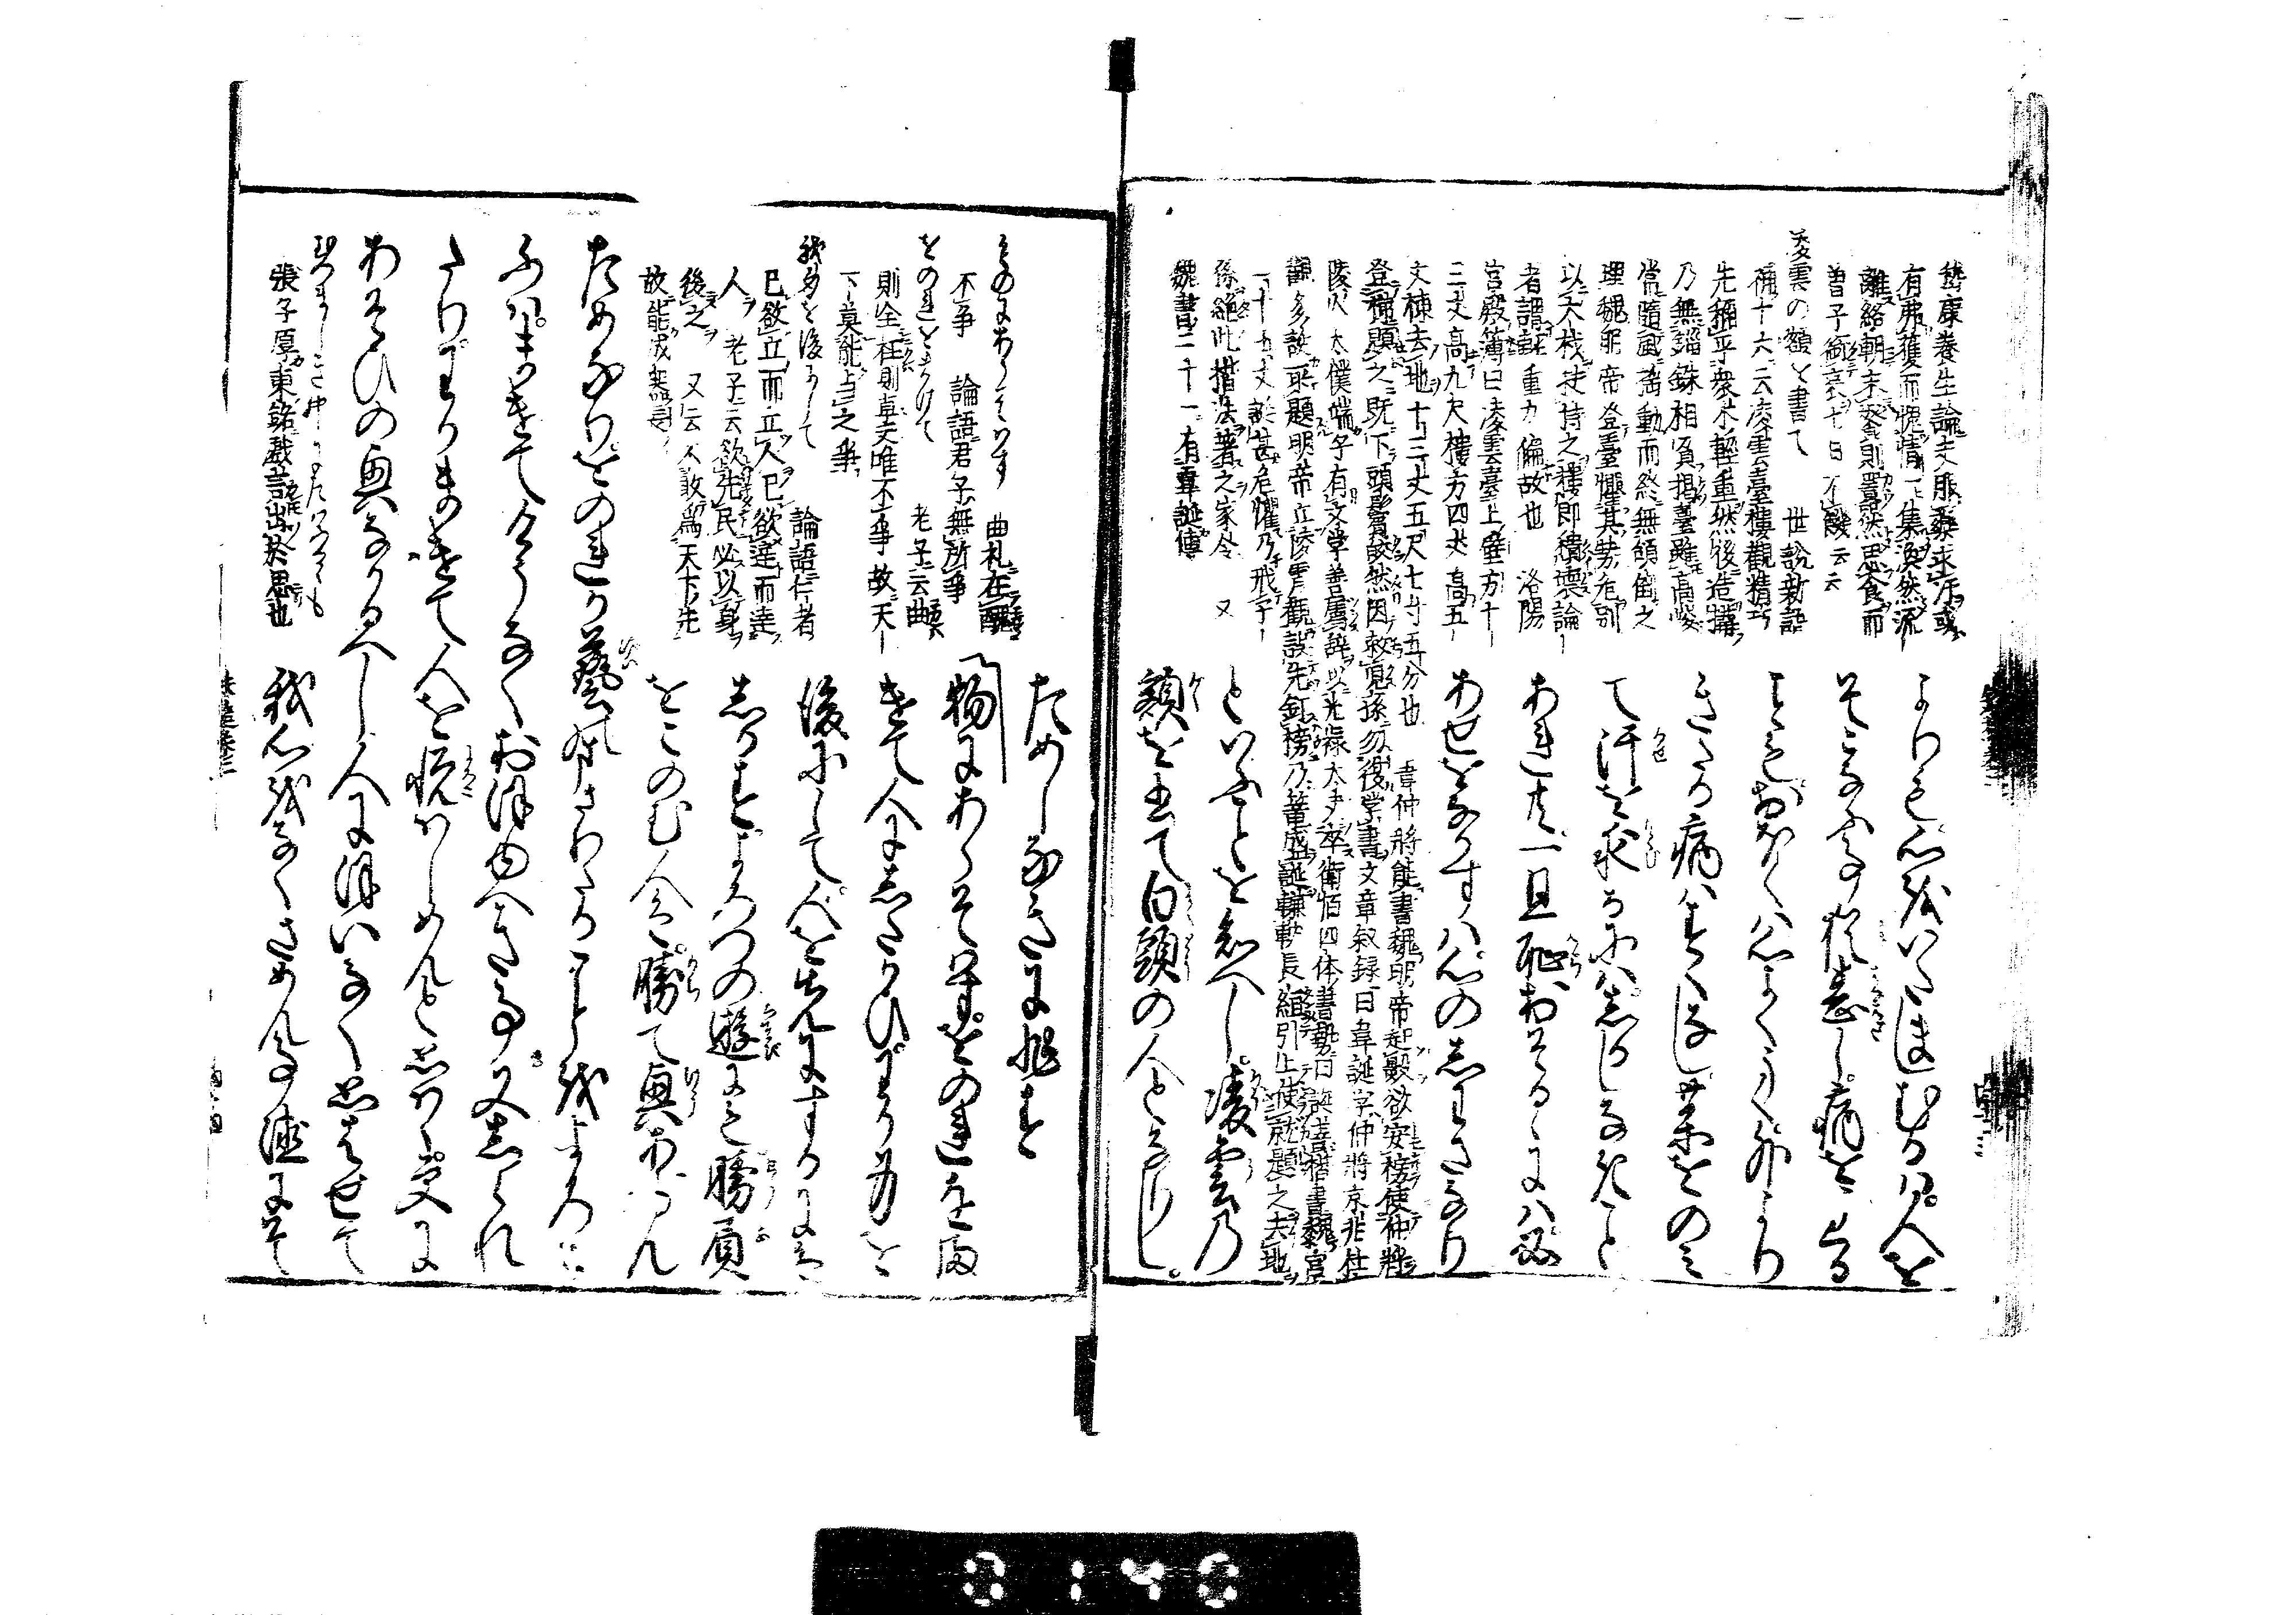 嵆康養生論夫服薬求汗或
有弗獲而愧情一集渙然流
離終朝未餐則囂然思食而
曽子銜哀七日不饑云云
凌雲の額を書て　世説新語
補十六云凌雲臺樓觀精巧
先稱平衆木輕重然後造搆
乃無錙銖相負揭臺雖高峻
常隨風搖動而終無傾倒之
理魏明帝登臺懼其勢危別
以大材扶持之樓即頽壊論
者謂輕重力偏故也　洛陽
宮殿簿曰凌雲臺上壁方十
三丈高九尺樓方四丈高五
丈棟去地十三丈五尺七寸五分也　韋仲將能書魏明帝起殿欲安榜使仲將
登梯題之既下頭鬢皓然因敕兒孫勿復学書文章叙録曰韋誕字仲將京兆杜
陵人太僕端子有文学善属辞以光禄大夫卒衛恒四体書勢曰誕善楷書魏宮
觀多誕所題明帝立陵霄觀誤先釘榜乃籠盛誕轆轤長絙引上使就題之去地
二十五丈誕甚危懼乃戒子
孫絶此楷法著之家令　又
魏書二十一有韋誕傳
よりも心をいたましむるは人を
そこなふ事猶甚し病をうくる
こともおほくは心よりうく外より
きたる病はすくなし薬をのみ
て汗を求るにはしるしなきこと
あれ共一旦恥おそるゝことあれハ必
あせをながすハ心のしわさなり
といふことを知へし凌雲の
額を書て白頭の人となりし
ためしなきに非す
ものにあらそはす　曲礼在醜
不争　論語君子無所争
をのれをまけて　老子云曲
則全枉則直夫唯不争故天
下莫能與之争
我身を後にして　論語仁者
己欲立而立人己欲達而達
人　老子云欲先民必以身
後之　又云不敢為天下先
故能成器長
物にあらそはすをのれをま
けて人にしたかひ我身を
後にして人を先にするには
しかすよろつの遊にも勝負
をこのむ人は勝て興あらん
ためなりをのれか藝のまさりたることをよろこ
ふされはまけて興なくおほゆへき事又しられ
たりわれまけて人を悦はしめんと思はゝ更に
あそひの興なかるへし人にほいなく思はせて
張子厚東銘戯言出於思也
我心をなくさめん事徳にそ